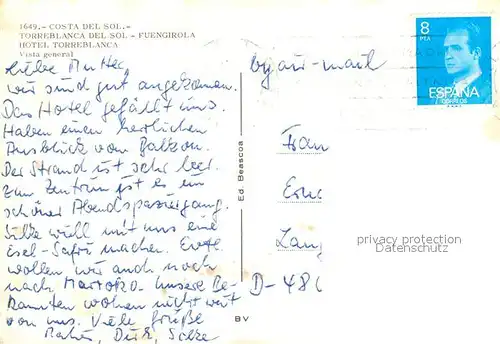 1649.- COSTA DEL SOL.-
TORREBLANCA DEL SOL - FUENGIROLA
HOTEL TORREBLANCA
Vista general
Liebe
wir sind gut angekommen.
Das Hotel gefällt uns.
Haben einen herrlichen
Ausblick vom Balkon.
Der Strand ist sehr leer.
Zum Zentrum ist es ein
schöner Abendspaziergang.
Silke will mit uns eine
Esel-Safri machen. Evtl.
wollen wir auch noch
nach Marokko. Unsere Be-
kannten wohnen nicht weit
von uns. Viele Grüße
Dirk, Silke
Ed. Beascoa
BV
by air-mail
8
PTA
ESPAÑA
CORREOS
Frau
Erne
Lang
D-480
privacy protection
www.ansichtskartenversand.com